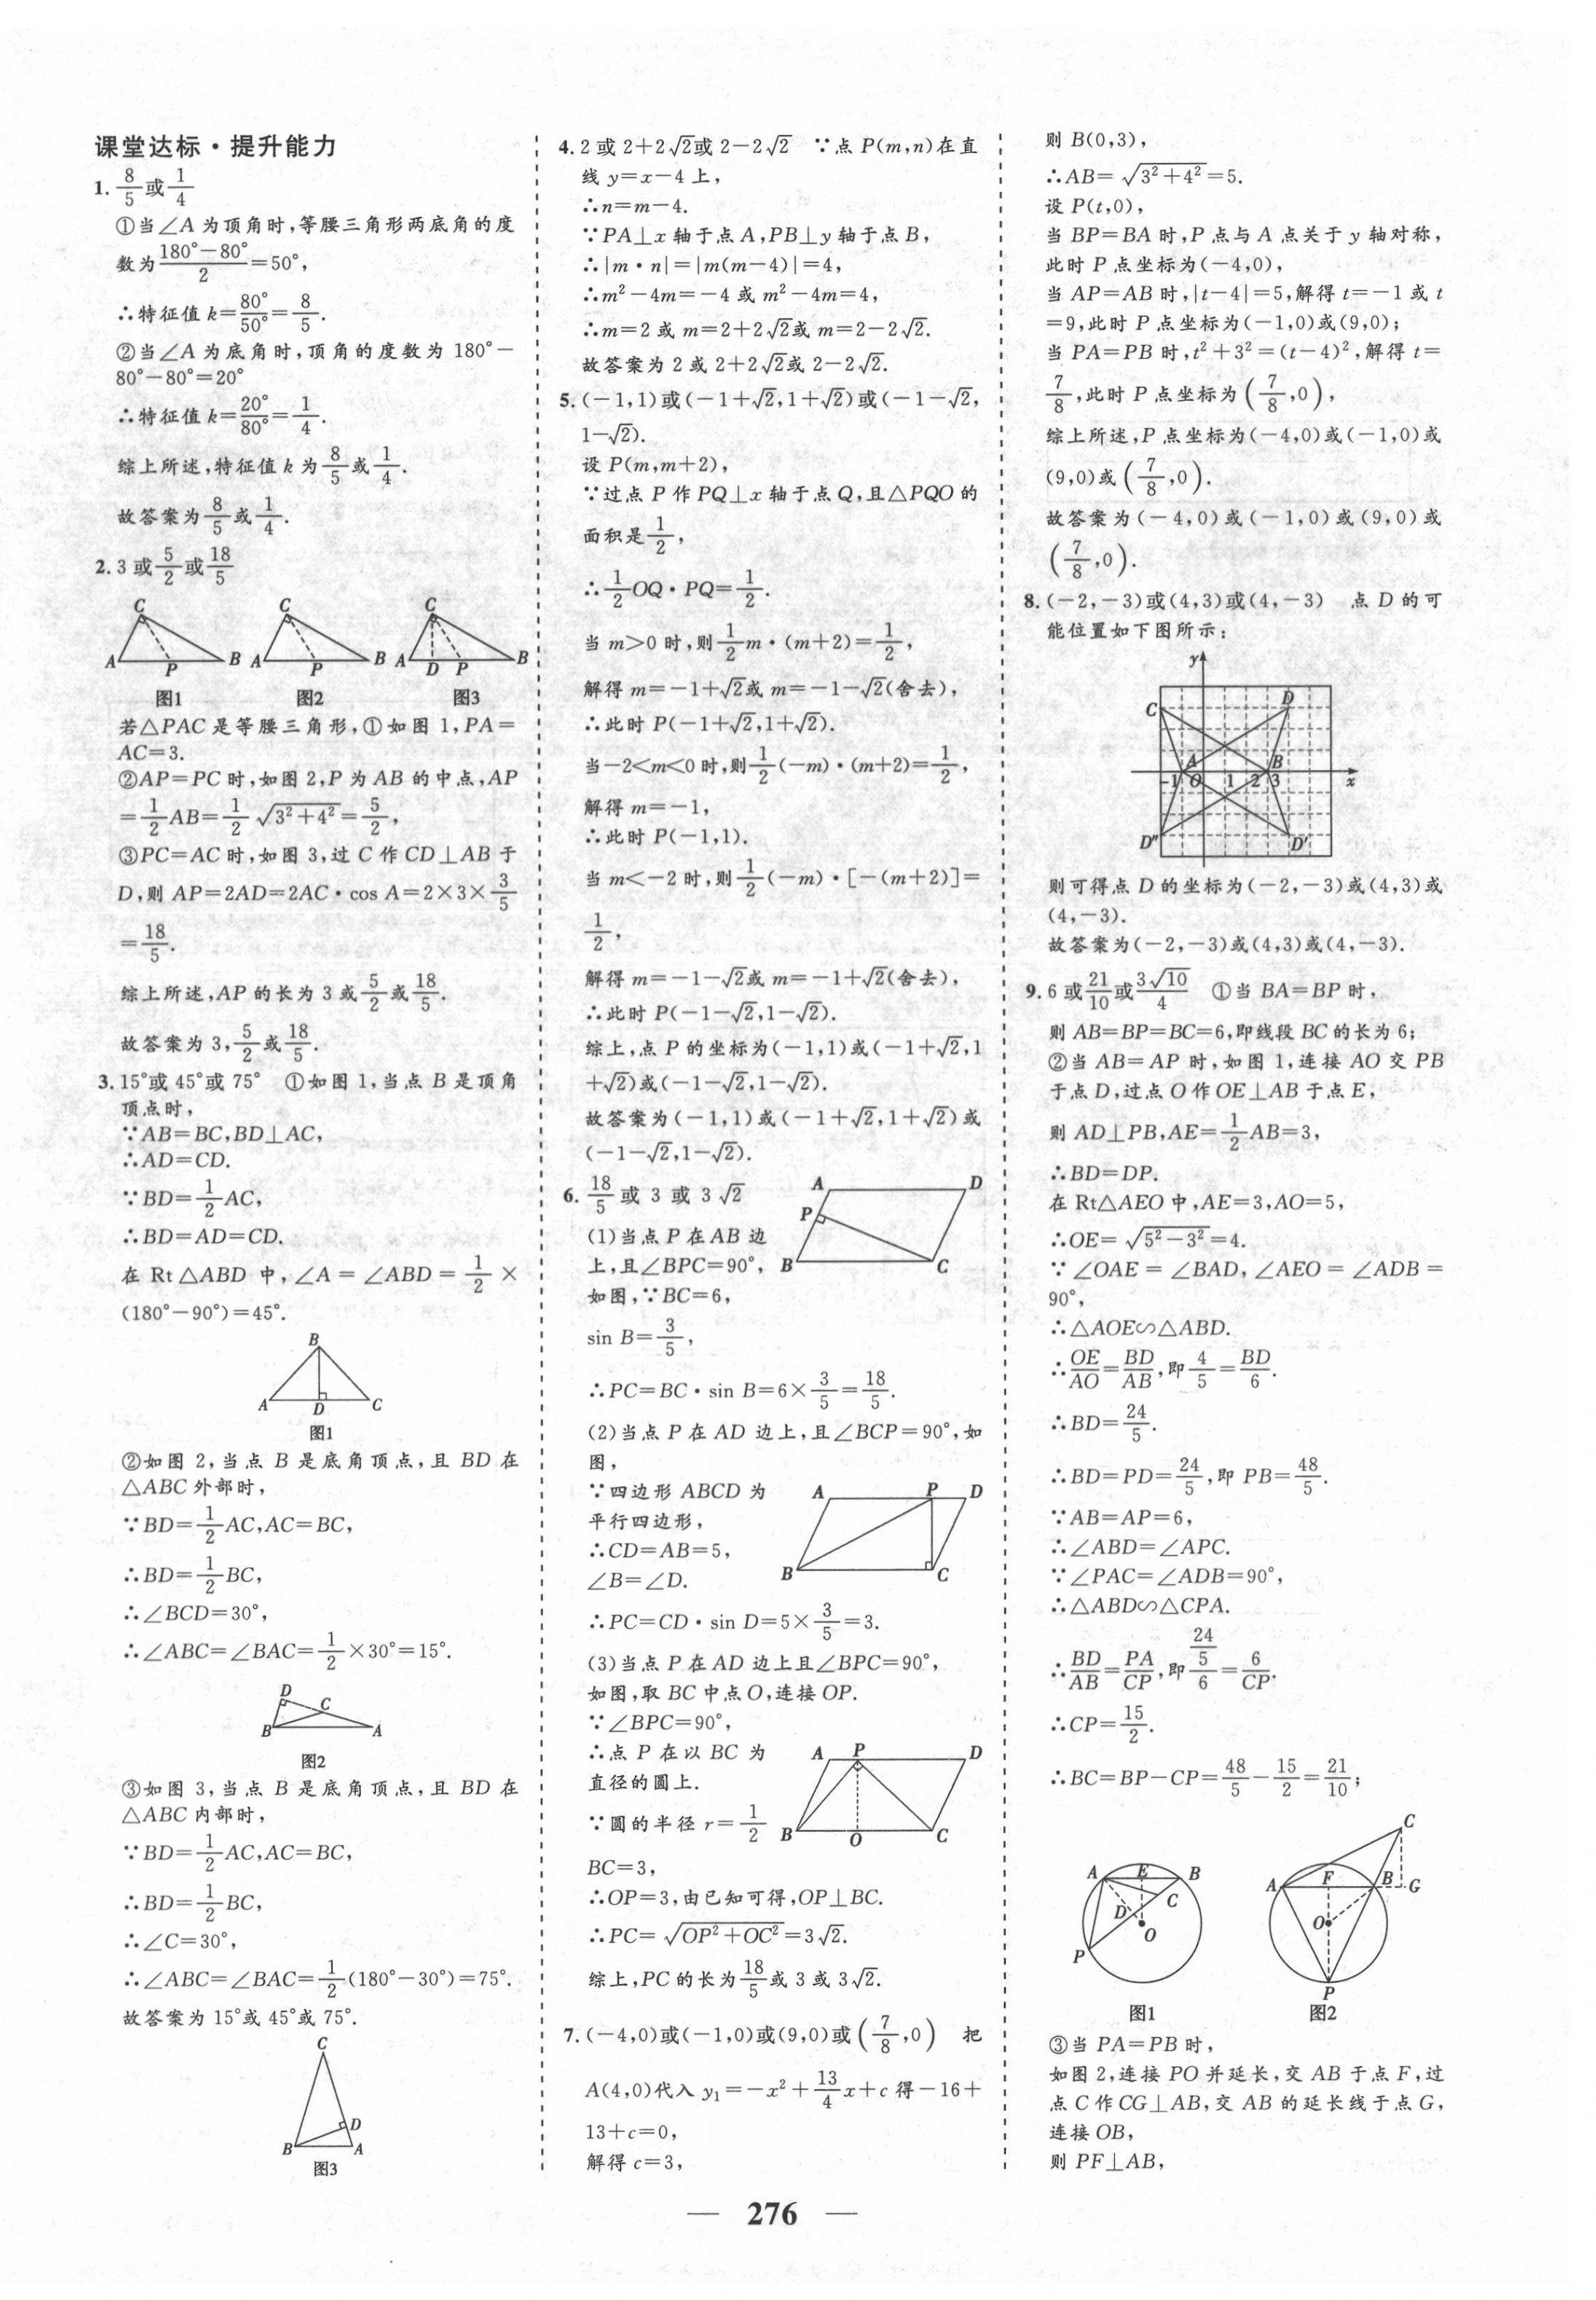 课堂达标·提升能力
1. 8/5或1/4
①当∠A为顶角时,等腰三角形两底角的度
数为(180°-80°)/2=50°,
∴特征值k=80°/50°=8/5.
②当∠A为底角时,顶角的度数为180°-
80°-80°=20°
∴特征值k=20°/80°=1/4.
综上所述,特征值k为8/5或1/4.
故答案为8/5或1/4.
2. 3或5/2或18/5
C C C
A P B A P B A D P B
图1 图2 图3
若△PAC是等腰三角形,①如图1,PA=
AC=3.
②AP=PC时,如图2,P为AB的中点,AP
=1/2AB=1/2√(3²+4²)=5/2,
③PC=AC时,如图3,过C作CD⊥AB于
D,则AP=2AD=2AC·cos A=2×3×3/5
=18/5.
综上所述,AP的长为3或5/2或18/5.
故答案为3,5/2或18/5.
3. 15°或45°或75° ①如图1,当点B是顶角
顶点时,
∵AB=BC,BD⊥AC,
∴AD=CD.
∵BD=1/2AC,
∴BD=AD=CD.
在Rt△ABD中,∠A=∠ABD=1/2×
(180°-90°)=45°.
B
A D C
图1
②如图2,当点B是底角顶点,且BD在
△ABC外部时,
∵BD=1/2AC,AC=BC,
∴BD=1/2BC,
∴∠BCD=30°,
∴∠ABC=∠BAC=1/2×30°=15°.
D C
B A
图2
③如图3,当点B是底角顶点,且BD在
△ABC内部时,
∵BD=1/2AC,AC=BC,
∴BD=1/2BC,
∴∠C=30°,
∴∠ABC=∠BAC=1/2(180°-30°)=75°.
故答案为15°或45°或75°.
C
D
B A
图3
4. 2或2+2√2或2-2√2 ∵点P(m,n)在直
线y=x-4上,
∴n=m-4.
∵PA⊥x轴于点A,PB⊥y轴于点B,
∴|m·n|=|m(m-4)|=4,
∴m²-4m=-4或m²-4m=4,
∴m=2或m=2+2√2或m=2-2√2.
故答案为2或2+2√2或2-2√2.
5. (-1,1)或(-1+√2,1+√2)或(-1-√2,
1-√2).
设P(m,m+2),
∵过点P作PQ⊥x轴于点Q,且△PQO的
面积是1/2,
∴1/2OQ·PQ=1/2.
当m>0时,则1/2m·(m+2)=1/2,
解得m=-1+√2或m=-1-√2(舍去),
∴此时P(-1+√2,1+√2).
当-2<m<0时,则1/2(-m)·(m+2)=1/2,
解得m=-1,
∴此时P(-1,1).
当m<-2时,则1/2(-m)·[-(m+2)]=
1/2,
解得m=-1-√2或m=-1+√2(舍去),
∴此时P(-1-√2,1-√2).
综上,点P的坐标为(-1,1)或(-1+√2,1
+√2)或(-1-√2,1-√2).
故答案为(-1,1)或(-1+√2,1+√2)或
(-1-√2,1-√2).
6. 18/5或3或3√2
(1)当点P在AB边
上,且∠BPC=90°,
如图,∵BC=6,
A D
P
B C
sin B=3/5,
∴PC=BC·sin B=6×3/5=18/5.
(2)当点P在AD边上,且∠BCP=90°,如
图,
∵四边形ABCD为
平行四边形,
∴CD=AB=5,
∠B=∠D.
A P D
B C
∴PC=CD·sin D=5×3/5=3.
(3)当点P在AD边上且∠BPC=90°,
如图,取BC中点O,连接OP.
∵∠BPC=90°,
∴点P在以BC为
直径的圆上.
∵圆的半径r=1/2
A P D
B O C
BC=3,
∴OP=3,由已知可得,OP⊥BC.
∴PC=√(OP²+OC²)=3√2.
综上,PC的长为18/5或3或3√2.
7. (-4,0)或(-1,0)或(9,0)或(7/8,0) 把
A(4,0)代入y₁=-x²+13/4x+c得-16+
13+c=0,
解得c=3,
则B(0,3),
∴AB=√(3²+4²)=5.
设P(t,0),
当BP=BA时,P点与A点关于y轴对称,
此时P点坐标为(-4,0),
当AP=AB时,|t-4|=5,解得t=-1或t
=9,此时P点坐标为(-1,0)或(9,0);
当PA=PB时,t²+3²=(t-4)²,解得t=
7/8,此时P点坐标为(7/8,0),
综上所述,P点坐标为(-4,0)或(-1,0)或
(9,0)或(7/8,0).
故答案为(-4,0)或(-1,0)或(9,0)或
(7/8,0).
8. (-2,-3)或(4,3)或(4,-3) 点D的可
能位置如下图所示:
y
C D
A B
-1 O 1 2 3 x
D″ D′
则可得点D的坐标为(-2,-3)或(4,3)或
(4,-3).
故答案为(-2,-3)或(4,3)或(4,-3).
9. 6或21/10或3√10/4 ①当BA=BP时,
则AB=BP=BC=6,即线段BC的长为6;
②当AB=AP时,如图1,连接AO交PB
于点D,过点O作OE⊥AB于点E,
则AD⊥PB,AE=1/2AB=3,
∴BD=DP.
在Rt△AEO中,AE=3,AO=5,
∴OE=√(5²-3²)=4.
∵∠OAE=∠BAD,∠AEO=∠ADB=
90°,
∴△AOE∽△ABD.
∴OE/AO=BD/AB,即4/5=BD/6.
∴BD=24/5.
∴BD=PD=24/5,即PB=48/5.
∵AB=AP=6,
∴∠ABD=∠APC.
∵∠PAC=∠ADB=90°,
∴△ABD∽△CPA.
∴BD/AB=PA/CP,即(24/5)/6=6/CP.
∴CP=15/2.
∴BC=BP-CP=48/5-15/2=21/10;
A E B
C
D
O
P
C
A F B G
O
P
图1 图2
③当PA=PB时,
如图2,连接PO并延长,交AB于点F,过
点C作CG⊥AB,交AB的延长线于点G,
连接OB,
则PF⊥AB,
— 276 —